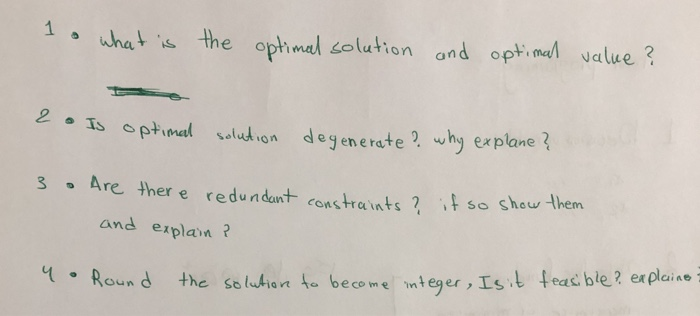 1 • what is the optimal solution and optimal value ?
2 • Is optimal solution degenerate ? why explane ?
3 • Are there redundant constraints ? if so show them
and explain ?
4 • Round the solution to become integer, Is it feasible ? explaine